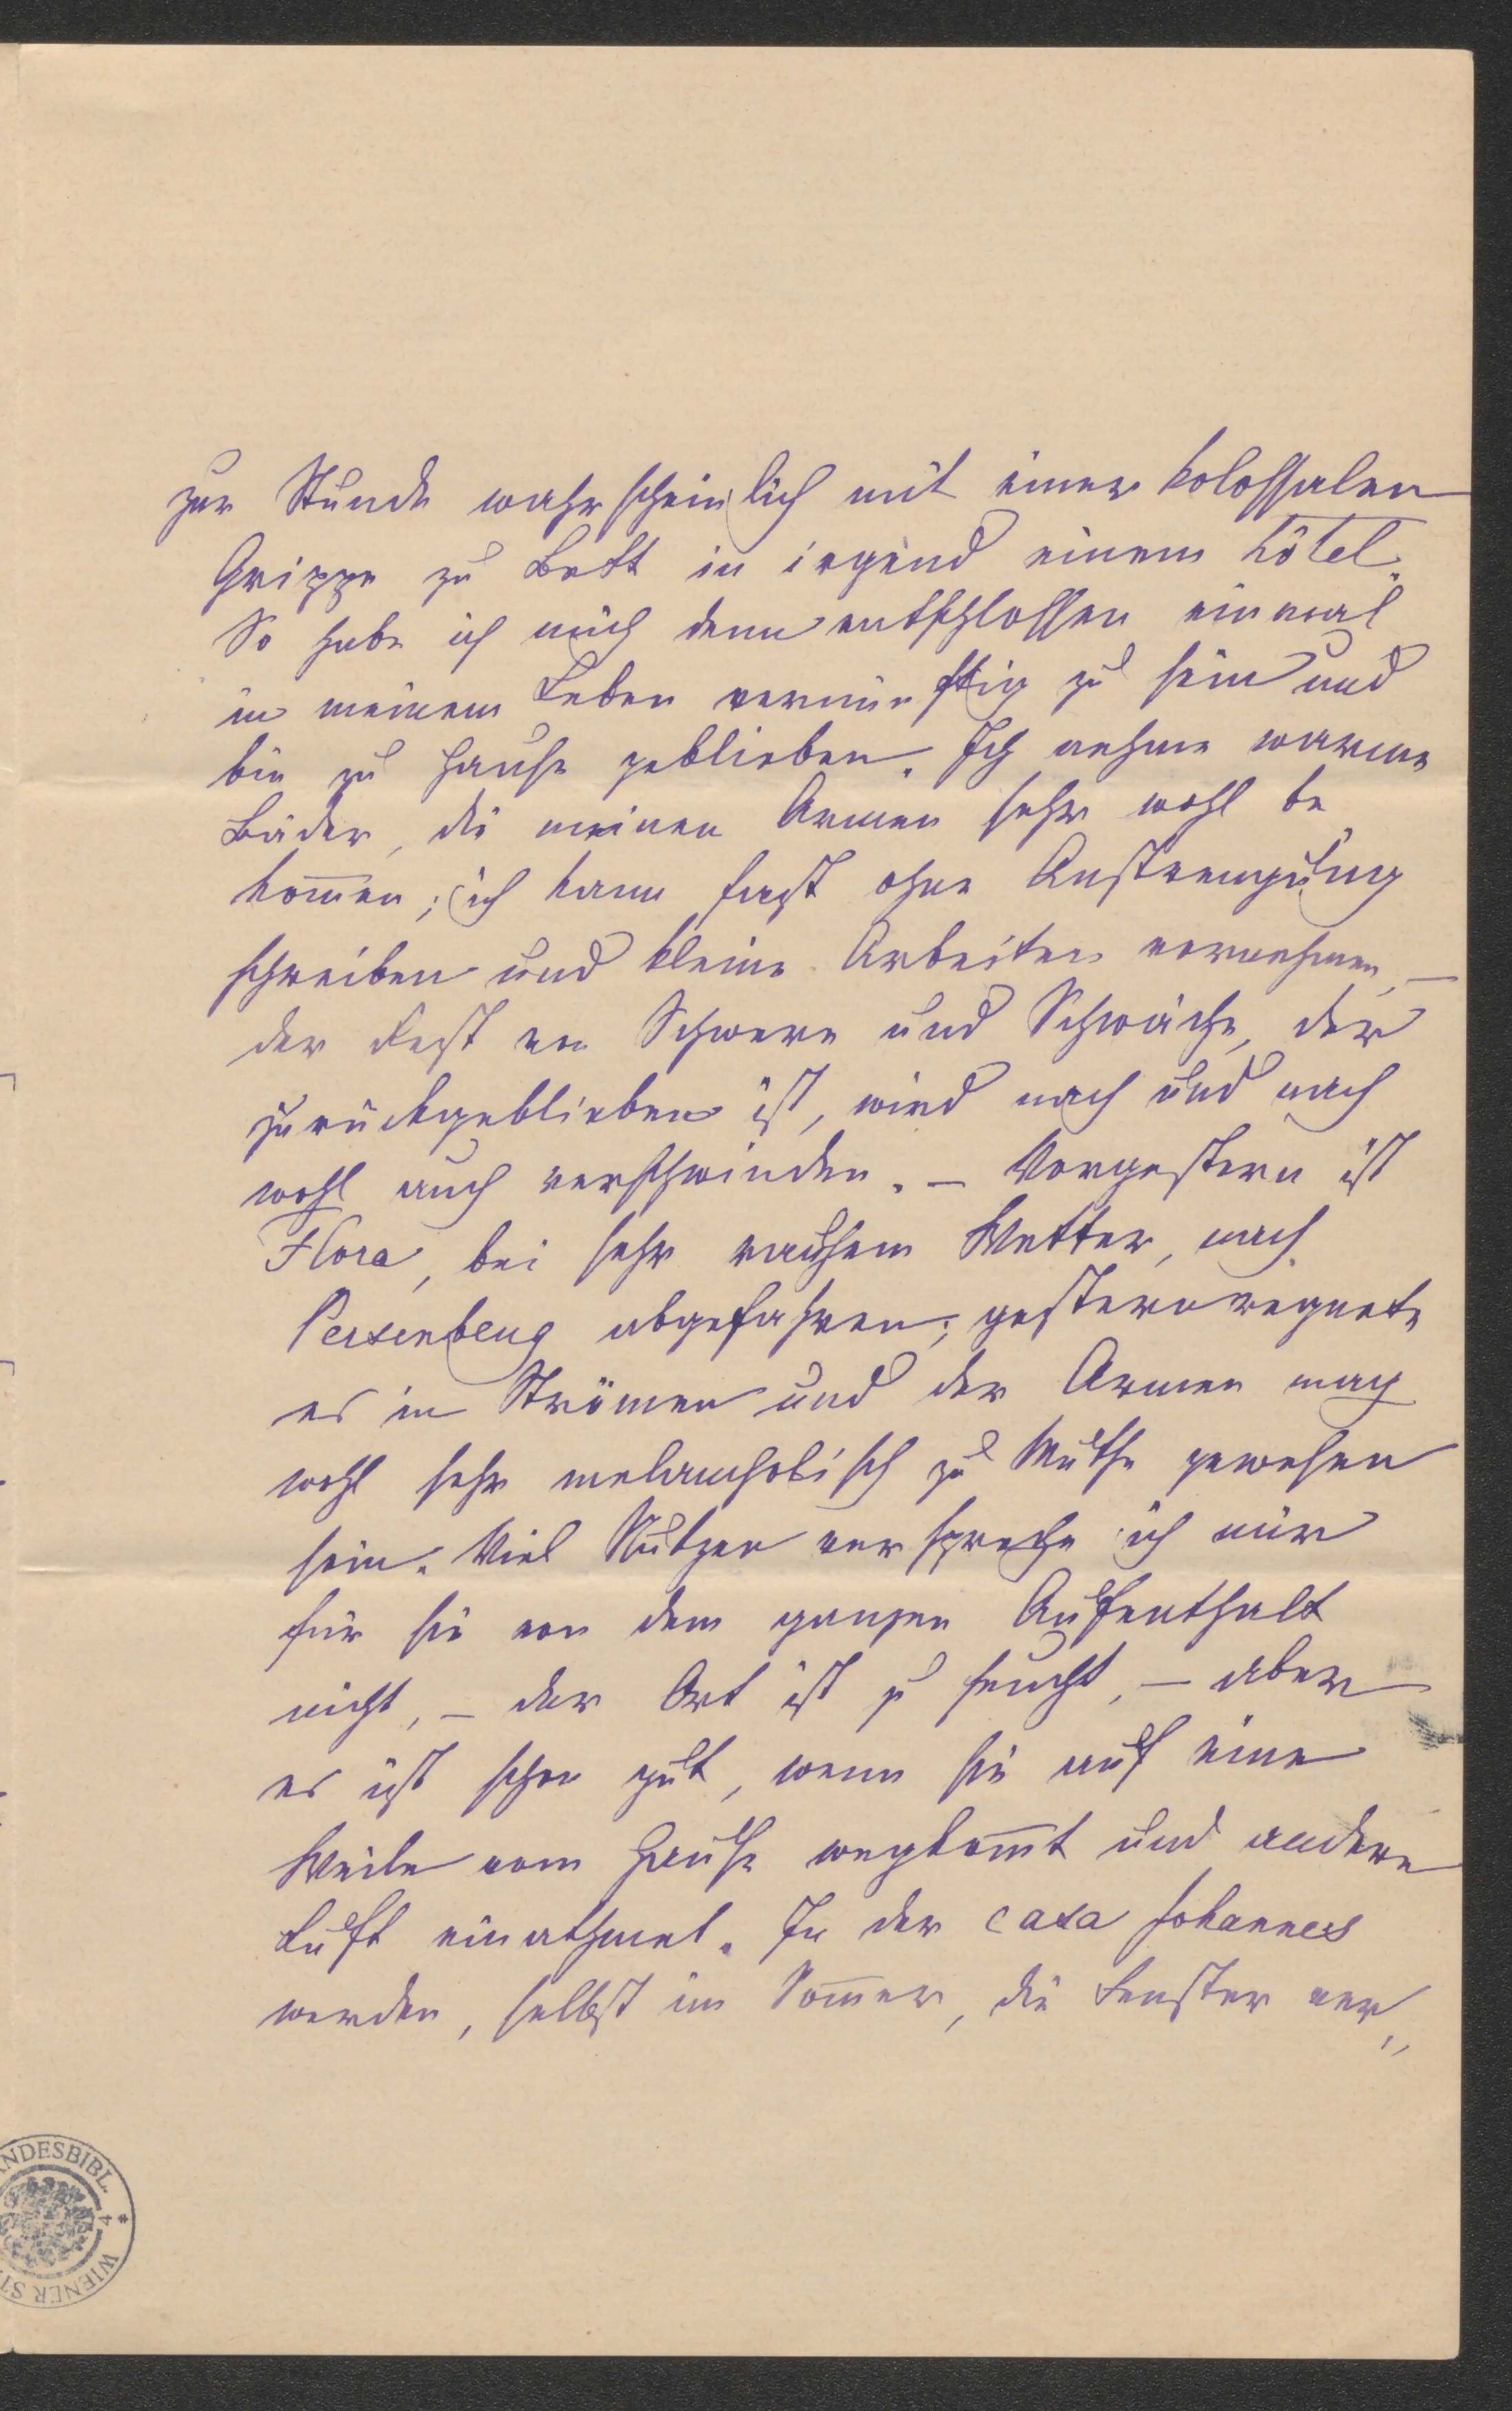 zur Stunde wahrscheinlich mit einer kolossalen
Grippe zu Bett in irgend einem Hôtel.
So habe ich mich denn entschlossen einmal
in meinem Leben vernünftig zu sein und
bin zu Hause geblieben. Ich nehme warme
Bäder, die meinen Armen sehr wohl be„
kom̅en; ich kann fast ohne Anstrengung
schreiben und kleine Arbeiten vornehmen, –
der Rest von Schwere und Schwäche, der
zurückgeblieben ist, wird nach und nach
wohl auch verschwinden. – Vorgestern ist
Flora, bei sehr rauhem Wetter, nach
Persenbeug abgefahren; gestern regnete
es in Strömen und der Armen mag
wohl sehr melancholisch zu Muthe gewesen
sein. Viel Nutzen verspreche ich mir
für sie von dem ganzen Aufenthalt
nicht, – der Ort ist zu feucht, – aber
es ist schon gut, wenn sie auf eine
Weile vom Hause wegkom̅t und andere
Luft einathmet. In der casa Johannes
werden, selbst im Som̅er, die Fenster ver„
ANDESBIBL. * 4 WIENER ST